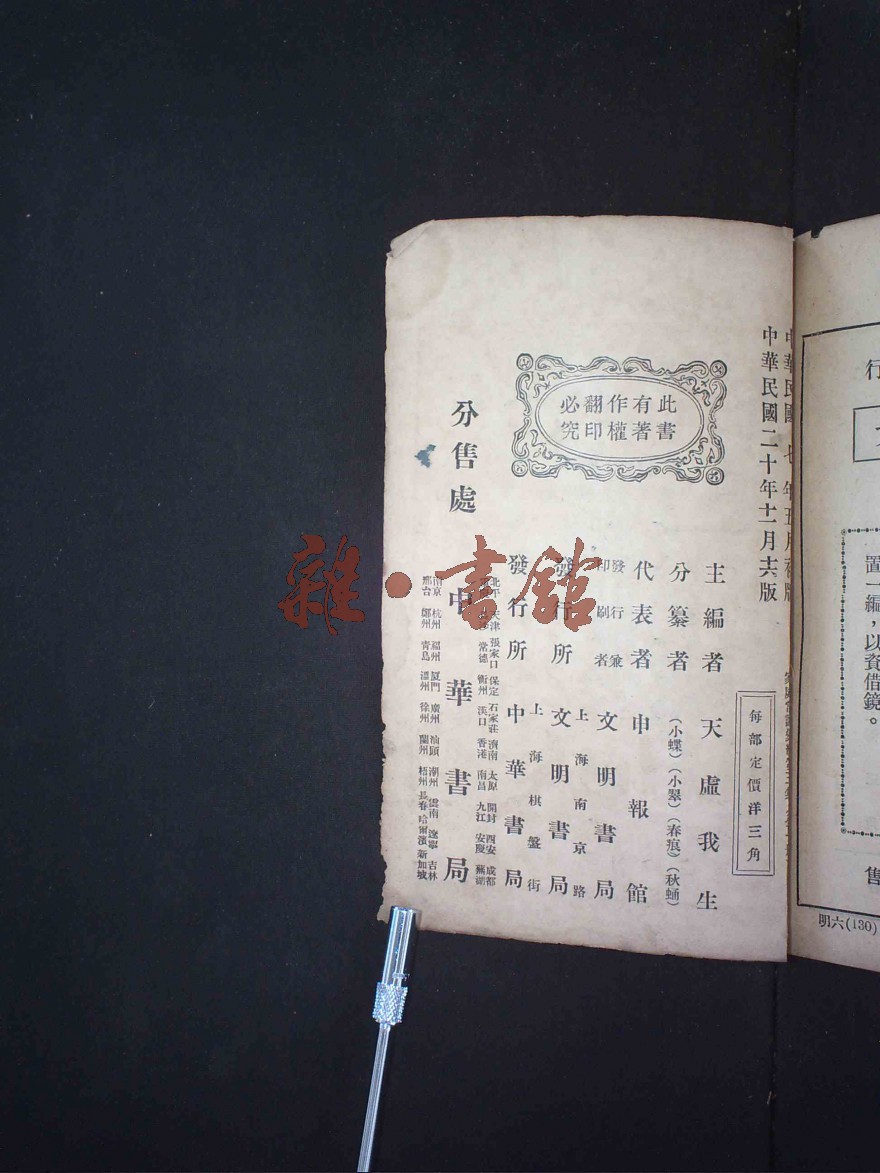 中華民國七年五月初版
中華民國二十年十一月六版
每部定價洋三角
此書有著作權翻印必究
主編者 天虛我生
分纂者 (小蝶)(小翠)(春痕)(秋蛹)
代表者 申報館
發行兼印刷者 文明書局
發行所 上海南京路 文明書局
發行所 上海棋盤街 中華書局
分售處
天津 張家口 保定 石家莊 濟南 太原 開封 西安 成都
常德 衡州 漢口 香港 南昌 九江 安慶 蕪湖
中華書局
南京 杭州 福州 厦門 廣州 汕頭 潮州 雲南 遼寧 吉林
邢台 鄭州 青島 溫州 徐州 蘭州 梧州 長春 哈爾濱 新加坡
行
置一編，以資借鏡。
售
明六(130)
雜·書館